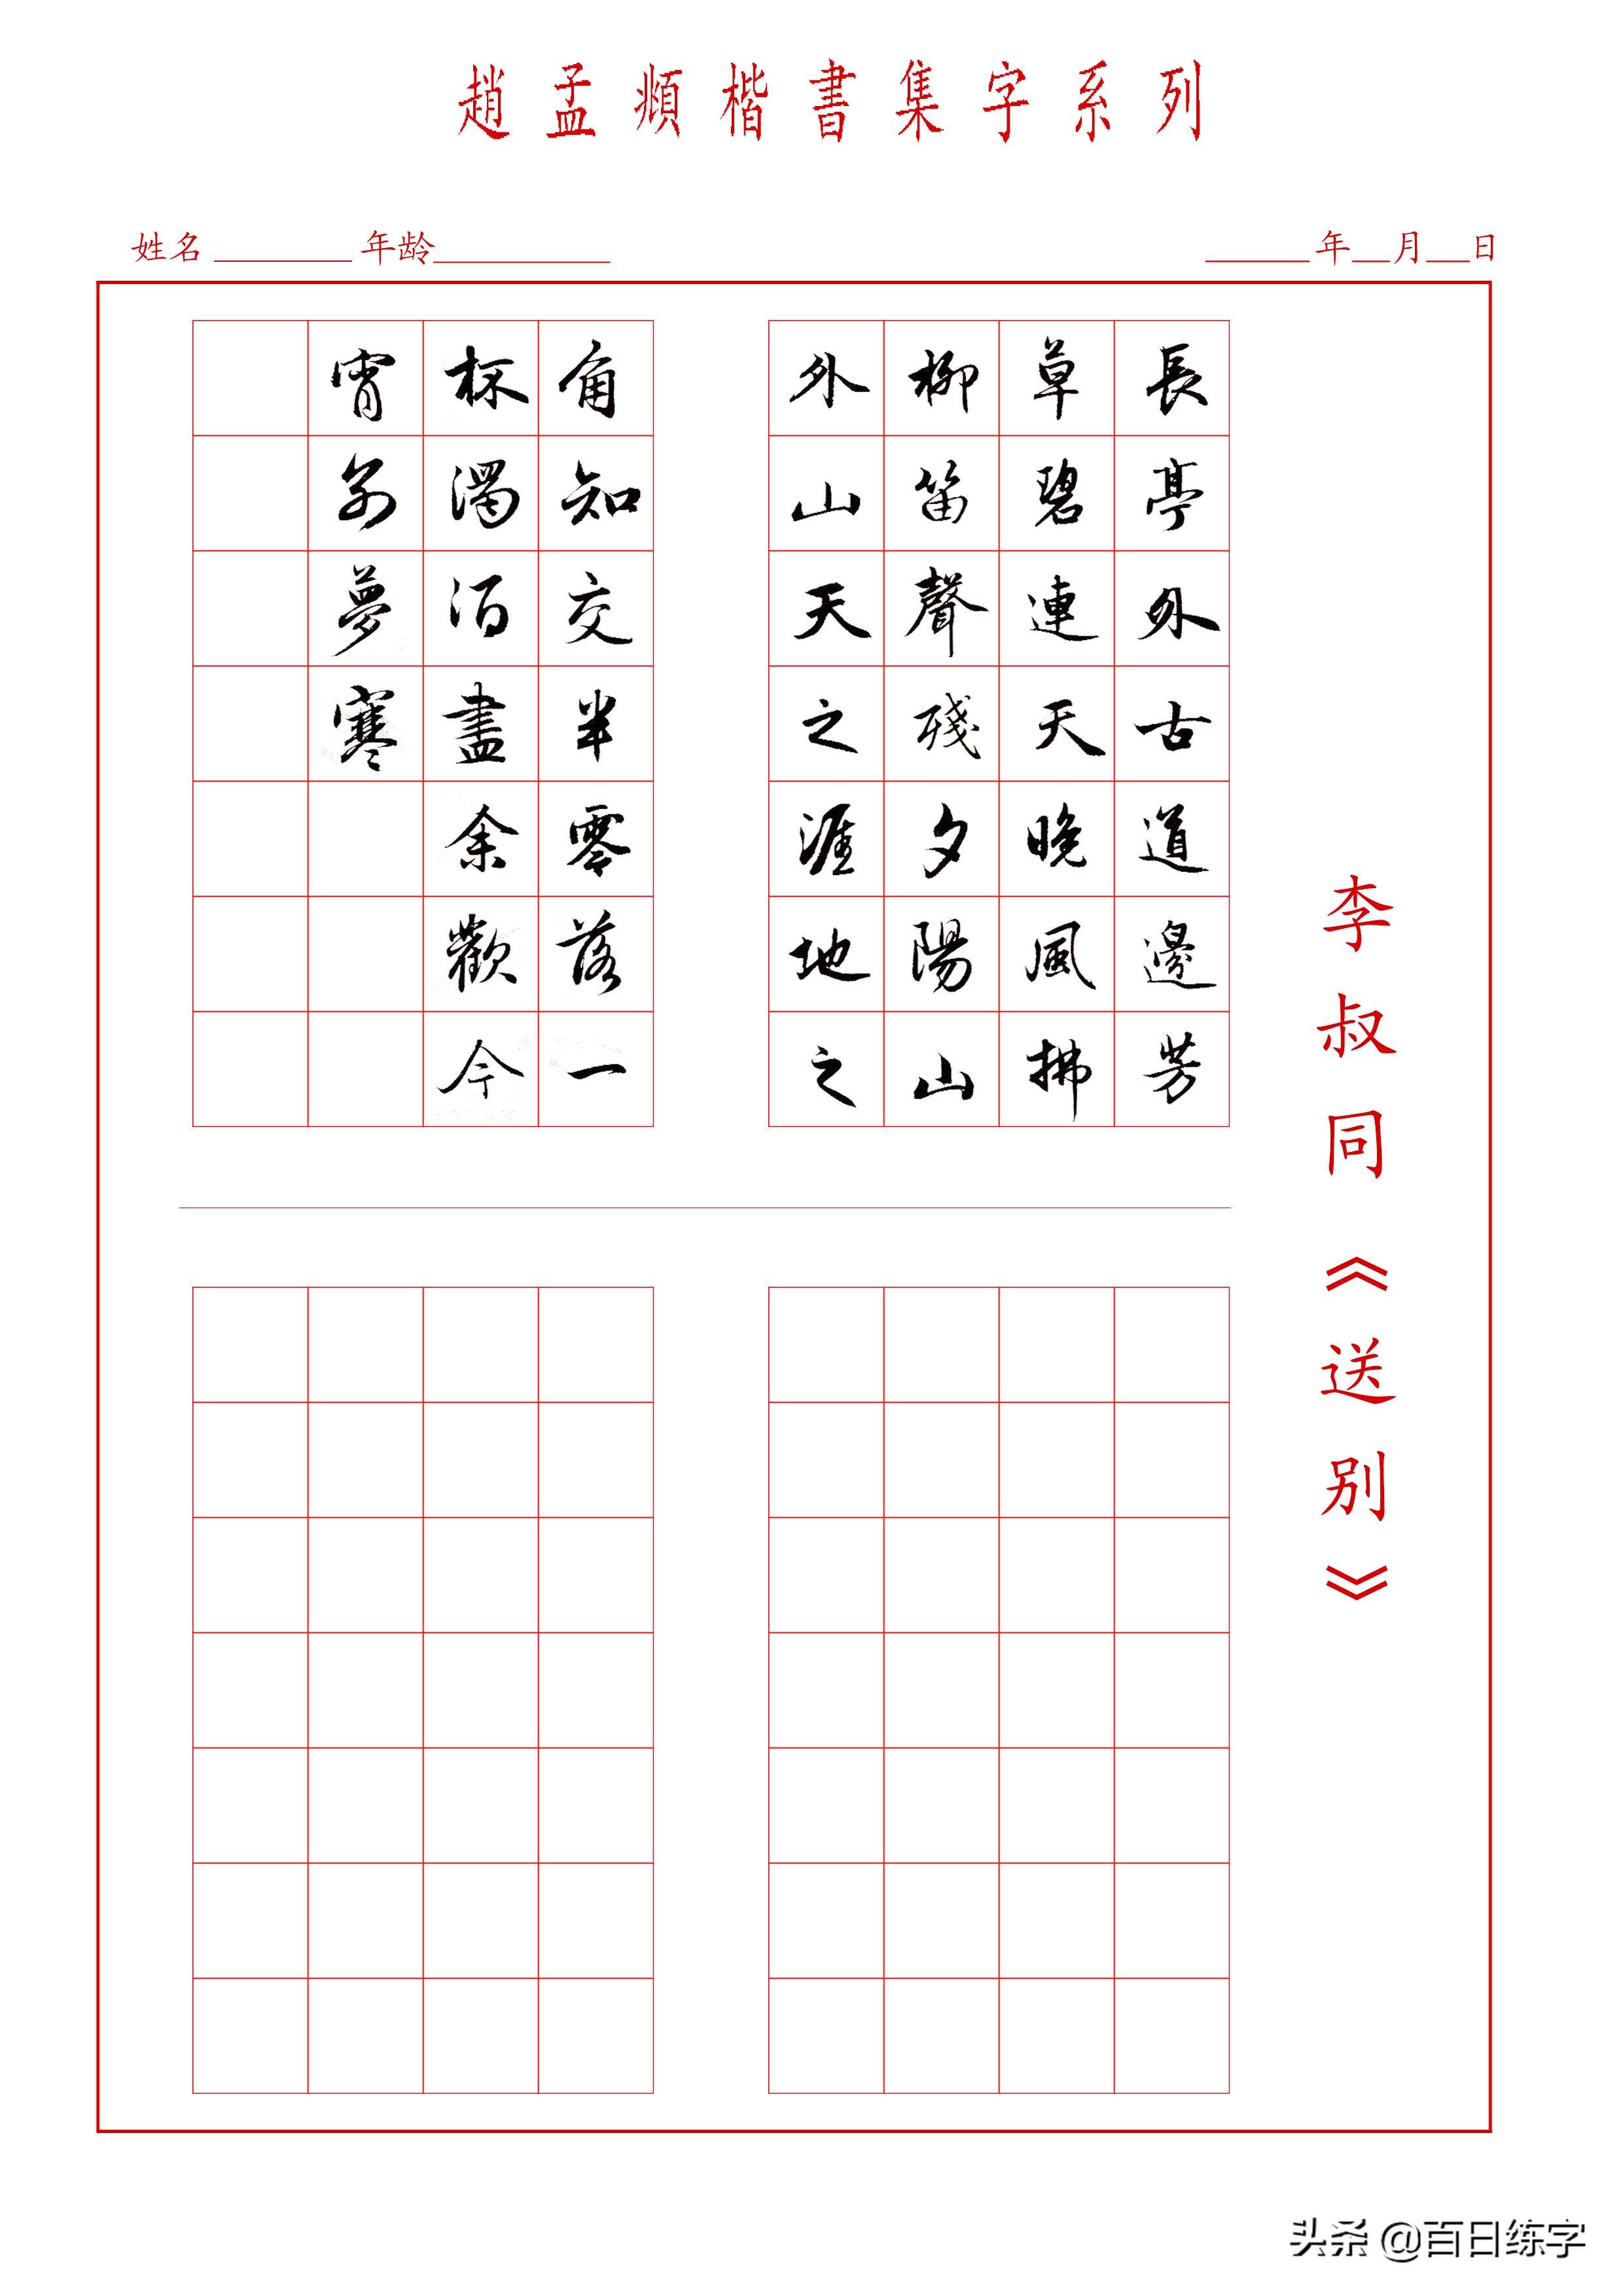 趙孟頫楷書集字系列
姓名 年龄 年 月 日
李叔同《送别》
長亭外古道邊芳
草碧連天晚風拂
柳笛聲殘夕陽山
外山天之涯地之
角知交半零落一
杯濁酒盡余歡今
宵别夢寒
头条 @百日练字